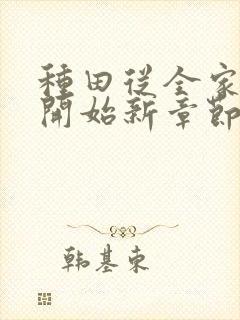 種田從全家
開始新章節
韩基东